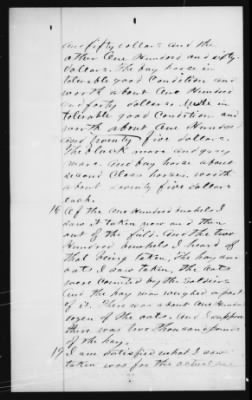 and fifty dollars and the
other One Hundred and sixty
dollars. The bay horse in
tolerable good condition and
worth about One Hundred
and forty dollars. Mule in
tolerable good condition and
worth about One Hundred
and twenty five dollars.
The black mare and grey
mare. And bay horse about
second class horses. worth
about seventy five dollars
each.
16 Of the One Hundred bushels I
saw it taken now and then
out of the field. And the two
Hundred bushels I heard of
that being taken. The hay and
oats I saw taken, the oats
were counted by the soldiers
and the hay was weighed a part
of it. There was about One Hundred
dozen of the oats. And I suppose
there was two thousand pounds
of the hay.
17 I am satisfied what I saw
taken was for the actual